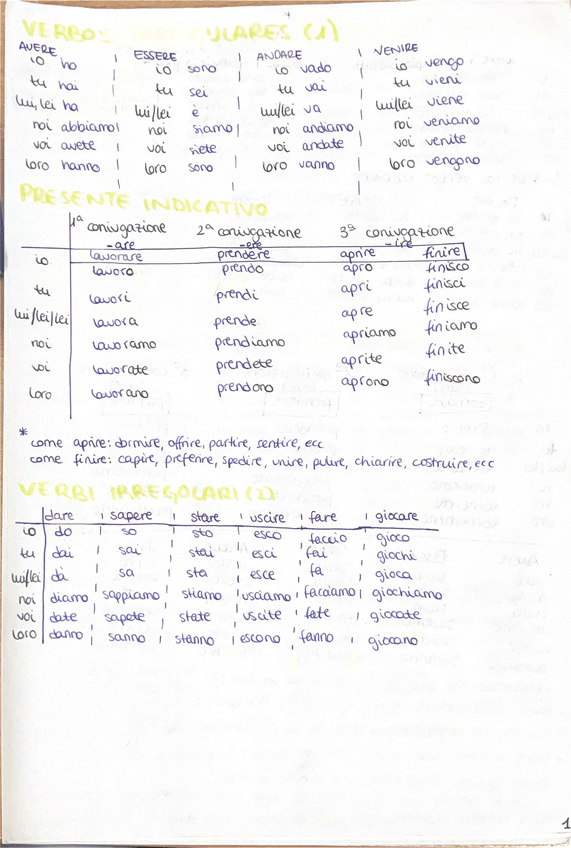 VERBOS ULARES (1)
AVERE ESSERE ANDARE VENIRE
io ho io sono io vado io vengo
tu hai tu sei tu vai tu vieni
lui/lei ha lui/lei è lui/lei va lui/lei viene
noi abbiamo noi siamo noi andiamo noi veniamo
voi avete voi siete voi andate voi venite
loro hanno loro sono loro vanno loro vengono
PRESENTE INDICATIVO
1ª coniugazione 2ª coniugazione 3ª coniugazione
-are -ere -ire
lavorare prendere aprire finire
io lavoro prendo apro finisco
tu lavori prendi apri finisci
lui/lei/lei lavora prende apre finisce
noi lavoramo prendiamo apriamo finiamo
voi lavorate prendete aprite finite
loro lavorano prendono aprono finiscono
*
come aprire: dormire, offrire, partire, sentire, ecc
come finire: capire, preferire, spedire, unire, pulire, chiarire, costruire, ecc
VERBI IRREGOLARI (2)
dare sapere stare uscire fare giocare
io do so sto esco faccio gioco
tu dai sai stai esci fai giochi
lui/lei dà sa sta esce fa gioca
noi diamo sappiamo stiamo usciamo facciamo giochiamo
voi date sapete state uscite fate giocate
loro danno sanno stanno escono fanno giocano
1